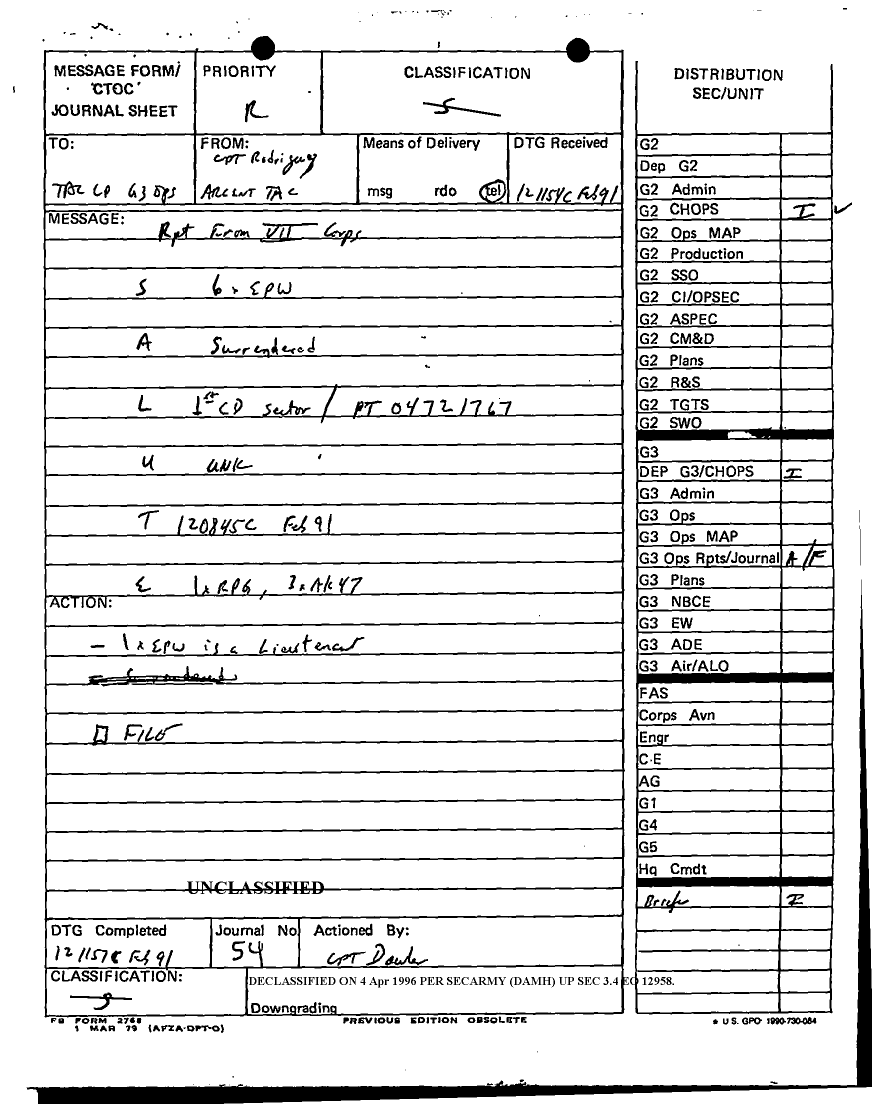 MESSAGE FORM/
'CTOC'
JOURNAL SHEET
PRIORITY
R
CLASSIFICATION
S
DISTRIBUTION
SEC/UNIT
TO:
TAC CP G3 OPS
FROM:
CPT Rodriguez
ARCENT TAC
Means of Delivery
msg rdo tel
DTG Received
121154C Feb 91
MESSAGE:
Rpt From VII Corps
S 6 x EPW
A Surrendered
L 1st CD sector / PT 04721767
U UNK
T 120845C Feb 91
E 1x RPG, 3x AK47
ACTION:
- 1 x EPW is a Lieutenant
- Surrendered
FILE
UNCLASSIFIED
DTG Completed
121157C Feb 91
Journal No
54
Actioned By:
CPT
CLASSIFICATION:
S
DECLASSIFIED ON 4 Apr 1996 PER SECARMY (DAMH) UP SEC 3.4 EO 12958.
Downgrading
G2
Dep G2
G2 Admin
G2 CHOPS I ✓
G2 Ops MAP
G2 Production
G2 SSO
G2 CI/OPSEC
G2 ASPEC
G2 CM&D
G2 Plans
G2 R&S
G2 TGTS
G2 SWO
G3
DEP G3/CHOPS I
G3 Admin
G3 Ops
G3 Ops MAP
G3 Ops Rpts/Journal A/F
G3 Plans
G3 NBCE
G3 EW
G3 ADE
G3 Air/ALO
FAS
Corps Avn
Engr
C-E
AG
G1
G4
G5
Hq Cmdt
Briefer I
FB FORM 2768
1 MAR 79 (AFZA-DPT-O)
PREVIOUS EDITION OBSOLETE
* U S. GPO 1990-730-084